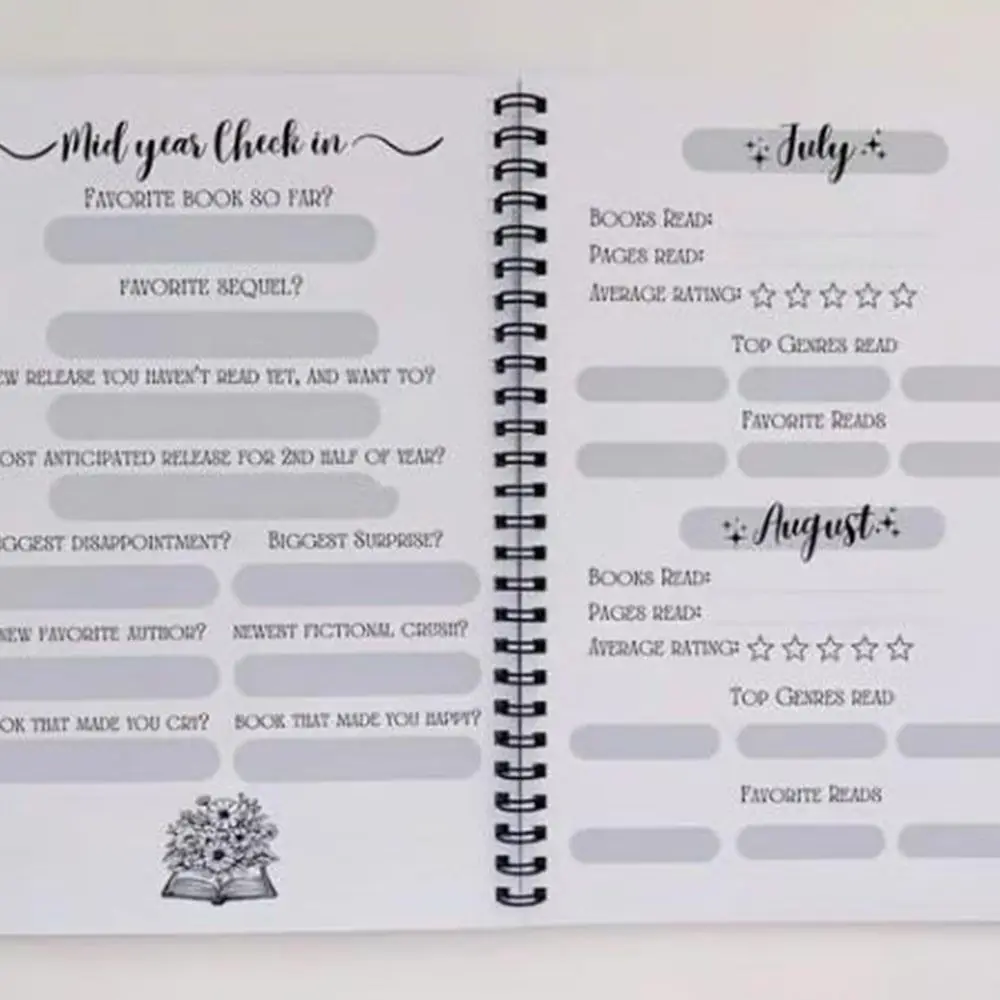 Mid year Check in
FAVORITE BOOK SO FAR?
FAVORITE SEQUEL?
EW RELEASE YOU HAVEN'T READ YET, AND WANT TO?
OST ANTICIPATED RELEASE FOR 2ND HALF OF YEAR?
GGEST DISAPPOINTMENT? BIGGEST SURPRISE?
NEW FAVORITE AUTHOR? NEWEST FICTIONAL CRUSH?
OK THAT MADE YOU CRY? BOOK THAT MADE YOU HAPPY?
July
BOOKS READ:
PAGES READ:
AVERAGE RATING:
TOP GENRES READ
FAVORITE READS
August
BOOKS READ:
PAGES READ:
AVERAGE RATING:
TOP GENRES READ
FAVORITE READS